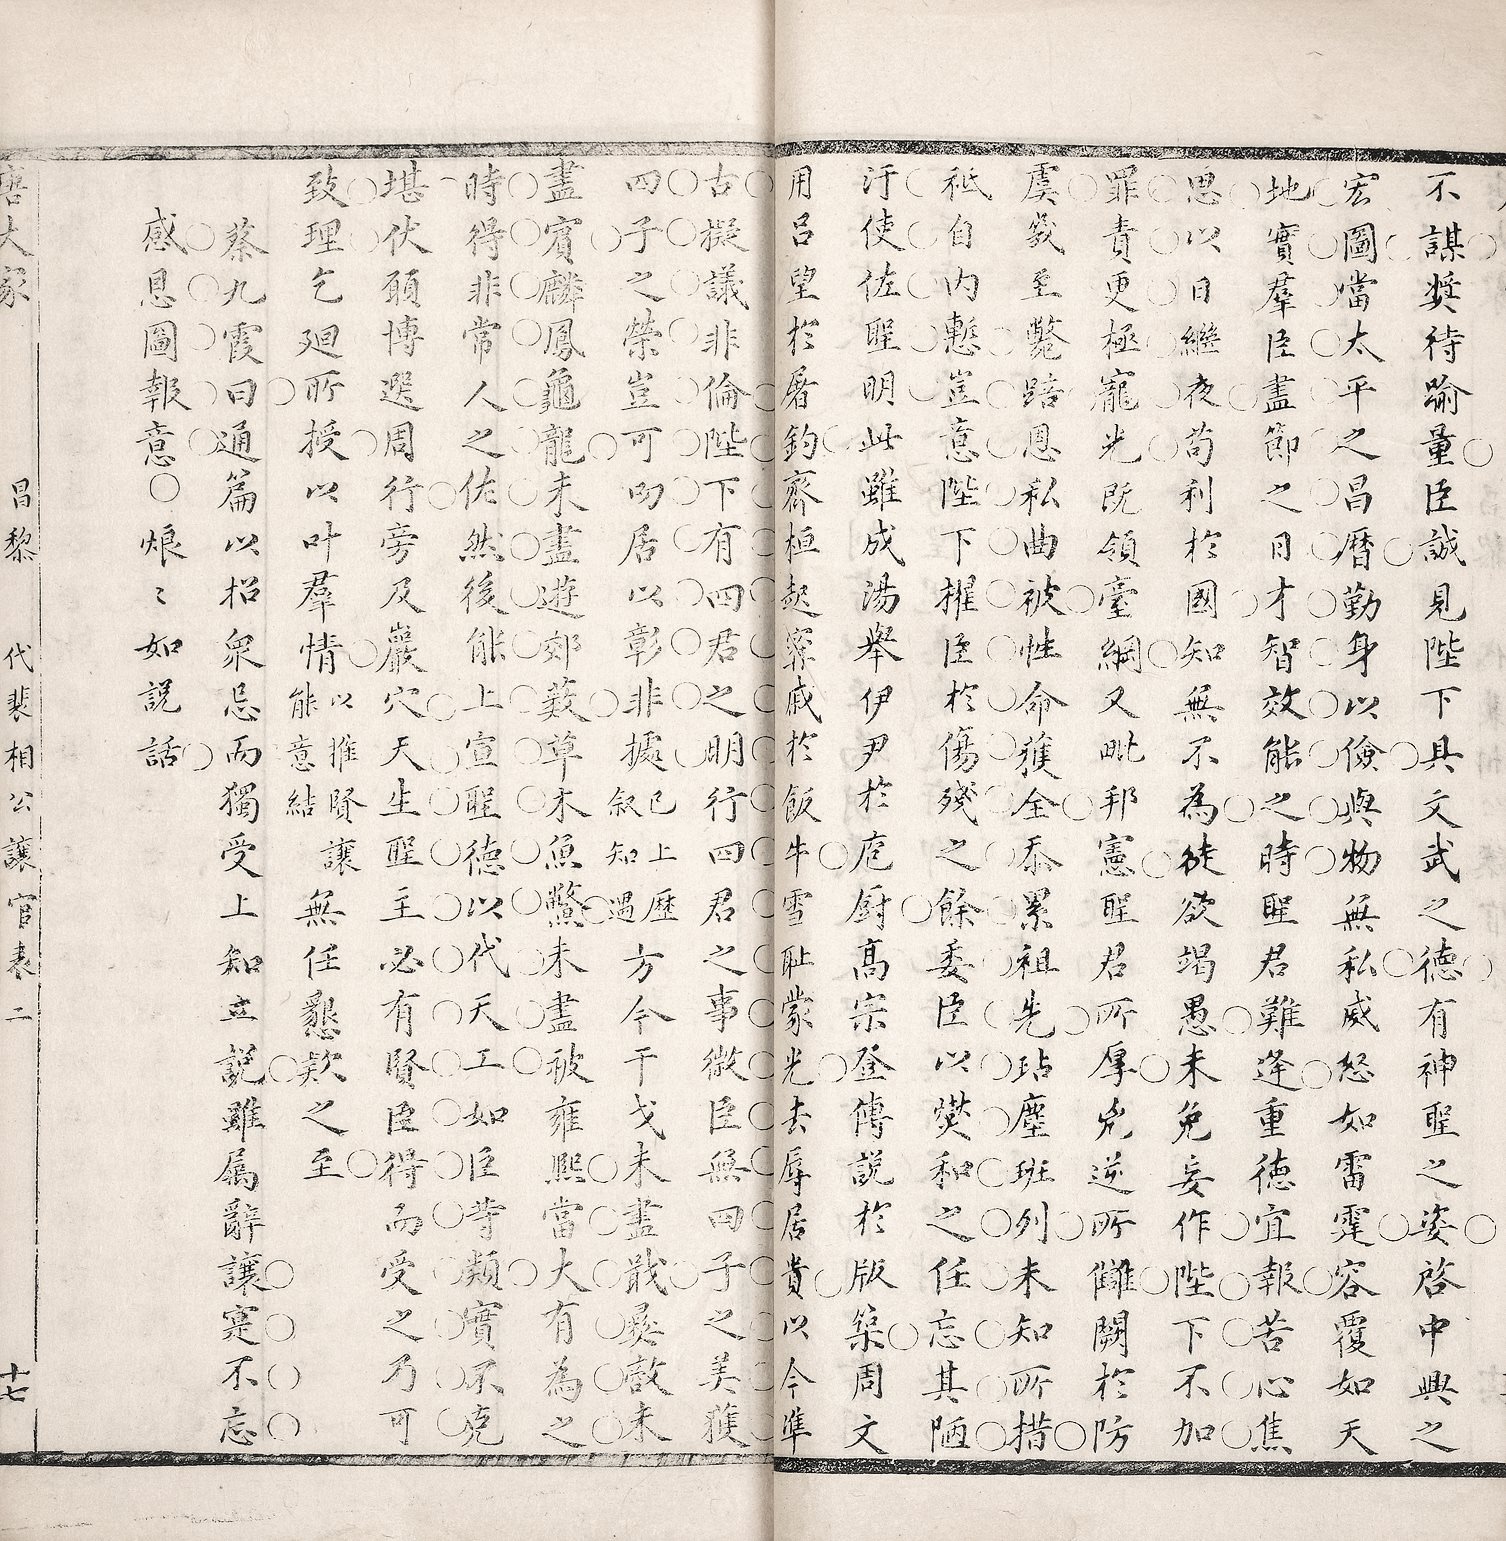 不謀奬待踰量臣誠見陛下具文武之徳有神聖之姿啓中興之
宏圖當太平之昌曆勤身以儉與物無私威怒如雷霆容覆如天
地實羣臣盡節之日才智效能之時聖君難逢重徳宜報苦心焦
思以日繼夜苟利於國知無不為徒欲竭愚未免妄作陛下不加
罪責更極寵光既領臺綱又毗邦憲聖君所厚兇逆所讎闕於防
虞幾至斃踣恩私曲被性命獲全忝累祖先玷塵班列未知所措
袛自内慙豈意陛下擢臣於傷殘之餘委臣以爕和之任忘其陋
汙使佐聖明此雖成湯舉伊尹於庖厨髙宗登傅説於版築周文
用吕望於屠釣齊桓起甯戚於飯牛雪耻蒙光去辱居貴以今凖
古擬議非倫陛下有四君之明行四君之事微臣無四子之美獲
四子之榮豈可叨居以彰非據已上歷叙知遇方今干戈未盡戢夷敵未
盡賓麟鳳龜龍未盡遊郊藪草木魚鱉未盡被雍熙當大有為之
時得非常人之佐然後能上宣聖徳以代天工如臣等類實不克
堪伏願博選周行旁及巖穴天生聖主必有賢臣得而受之乃可
致理乞廻所授以叶羣情以推賢讓能意結無任懇欵之至
蔡九霞曰通篇以招衆忌而獨受上知立説雖属辭讓寔不忘
感恩圖報意○烺〻如説話
唐大家
昌黎
代裴相公讓官表二
十七